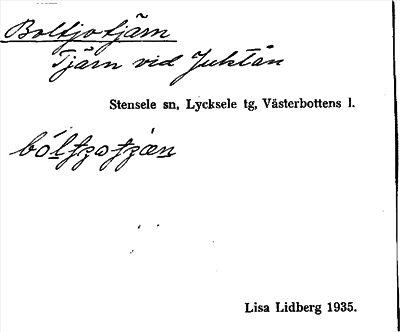 Boltjotjärn
Tjärn vid Juktån
Stensele sn, Lycksele tg, Västerbottens l.
Lisa Lidberg 1935.